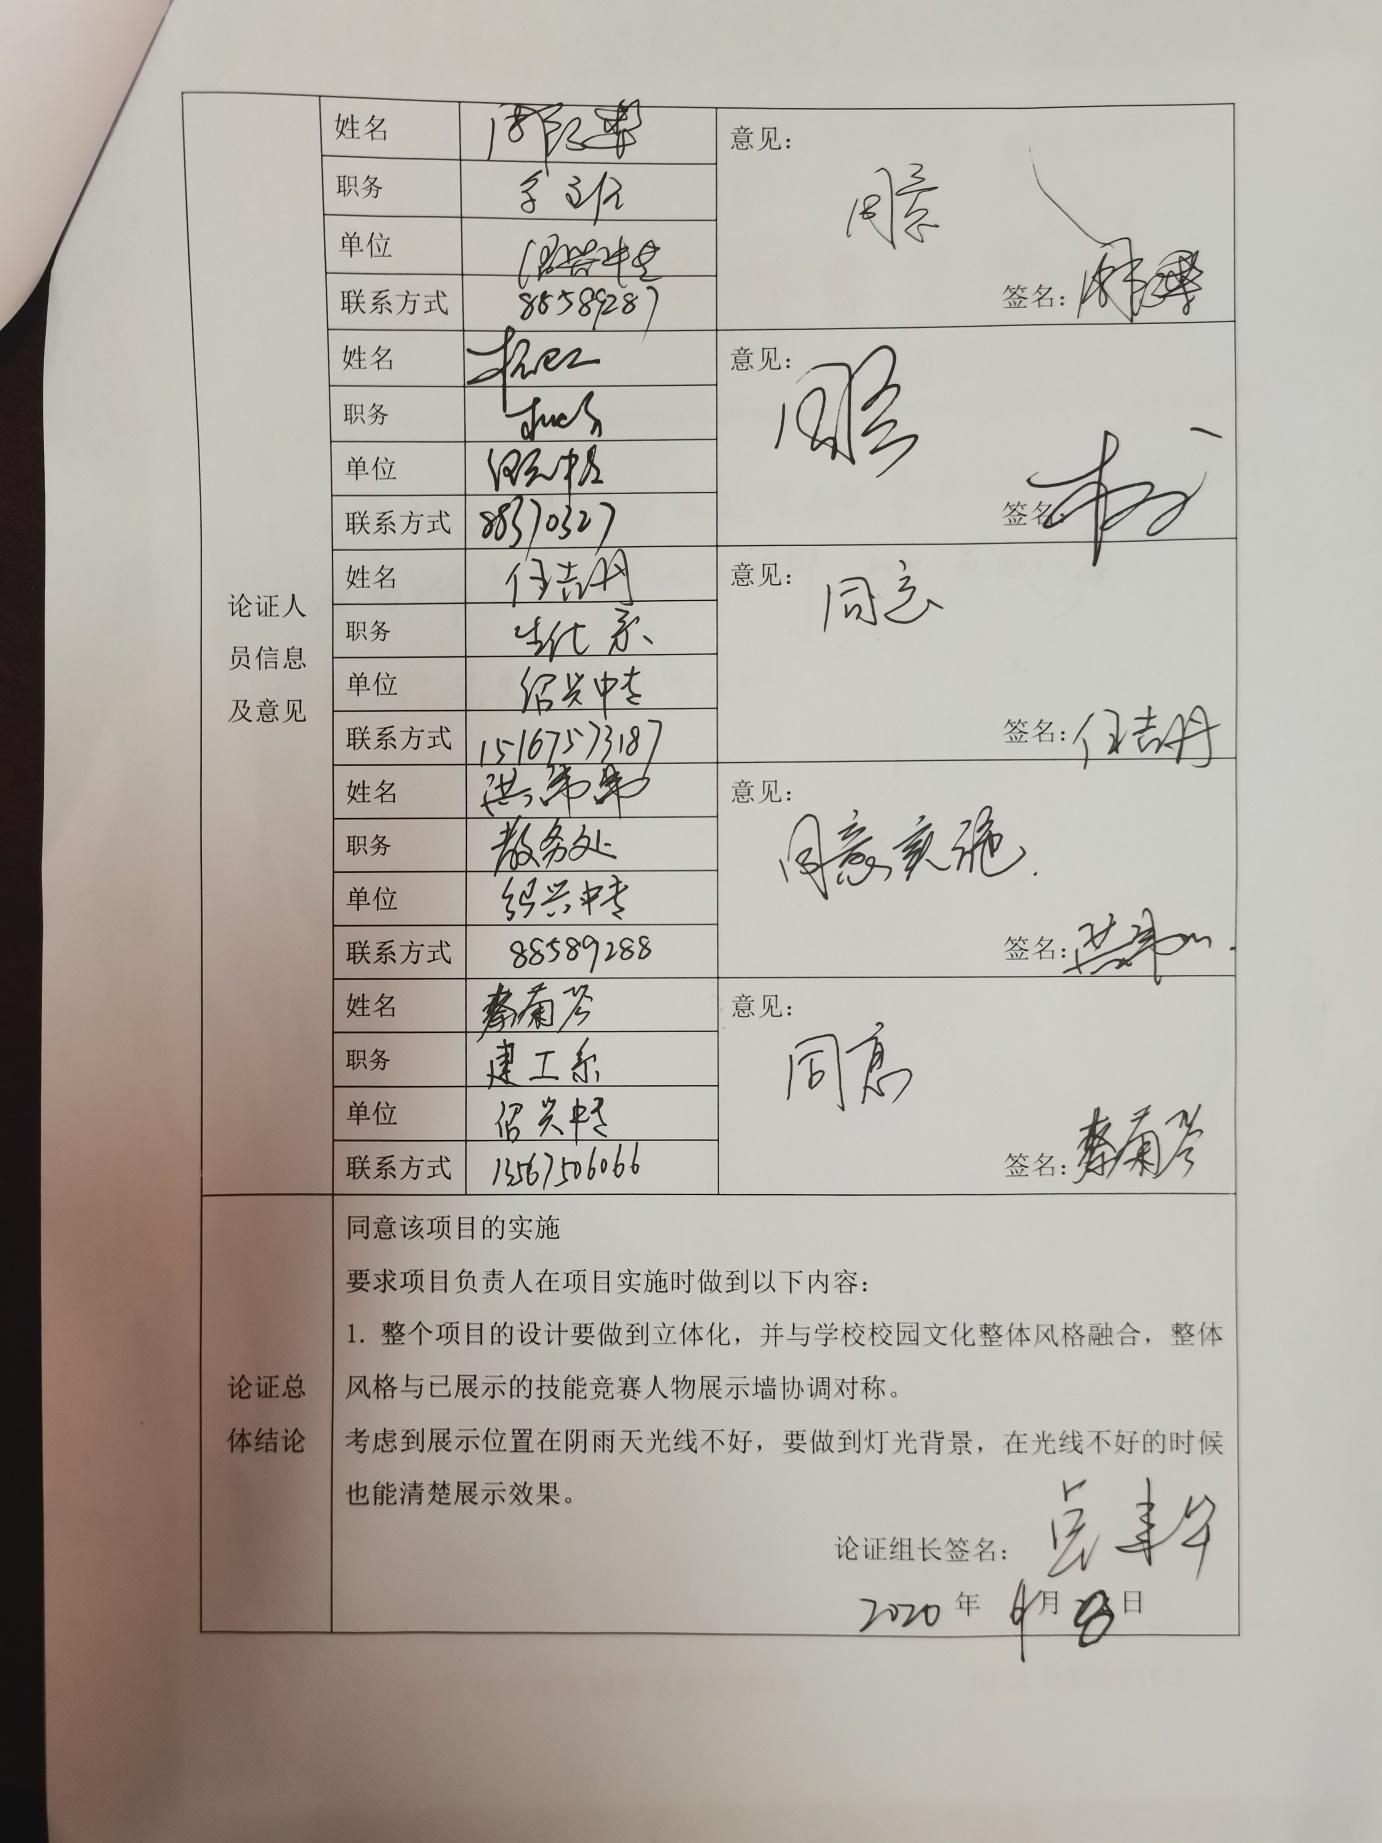 论证人
员信息
及意见
姓名
职务 系主任
单位 绍兴中专
联系方式 88589287
意见：
同意
签名：
姓名
职务
单位 绍兴中专
联系方式 88370327
意见：
同意
签名：
姓名 任吉丹
职务 生化系
单位 绍兴中专
联系方式 15167573187
意见：
同意
签名：任吉丹
姓名 洪弟弟
职务 教务处
单位 绍兴中专
联系方式 88589288
意见：
同意实施.
签名：
姓名 蔡菊芬
职务 建工系
单位 绍兴中专
联系方式 13567506066
意见：
同意
签名：蔡菊芬
论证总
体结论
同意该项目的实施
要求项目负责人在项目实施时做到以下内容：
1. 整个项目的设计要做到立体化，并与学校校园文化整体风格融合，整体
风格与已展示的技能竞赛人物展示墙协调对称。
考虑到展示位置在阴雨天光线不好，要做到灯光背景，在光线不好的时候
也能清楚展示效果。
论证组长签名：
2020 年 9 月 8 日